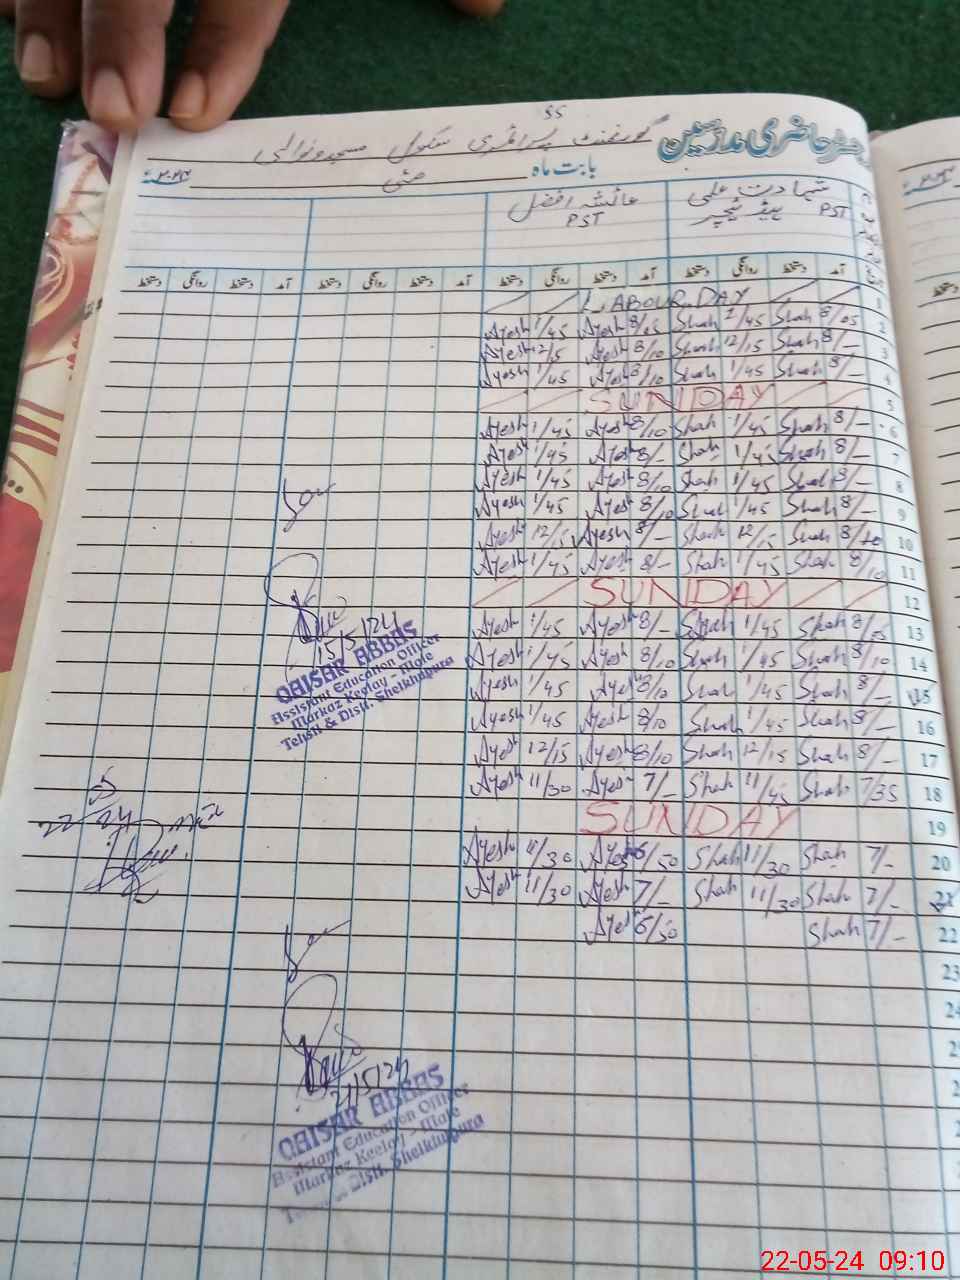 55
رجسٹر حاضری مدرسین گورنمنٹ پرائمری سکول
بابت ماہ مئی ۲۰۲۴ء
شہادت علی PST عائشہ افضل PST
ہیڈ ٹیچر
آمد دستخط روانگی دستخط آمد دستخط روانگی دستخط آمد دستخط روانگی دستخط آمد دستخط روانگی دستخط
LABOUR DAY 1
Ayesh 1/45 Ayesh 8/05 Shah 1/45 Shah 8/05 2
Ayesh 12/15 Ayesh 8/10 Shah 12/15 Shah 8/- 3
Ayesh 1/45 Ayesh 8/10 Shah 1/45 Shah 8/- 4
SUNDAY 5
Ayesh 1/45 Ayesh 8/10 Shah 1/45 Shah 8/- 6
Ayesh 1/45 Ayesh 8/- Shah 1/45 Shah 8/- 7
Ayesh 1/45 Ayesh 8/10 Shah 1/45 Shah 8/- 8
Ayesh 1/45 Ayesh 8/10 Shah 1/45 Shah 8/- 9
Ayesh 12/15 Ayesh 8/- Shah 12/15 Shah 8/10 10
Ayesh 1/45 Ayesh 8/- Shah 1/45 Shah 8/10 11
SUNDAY 12
Ayesh 1/45 Ayesh 8/- Shah 1/45 Shah 8/05 13
Ayesh 1/45 Ayesh 8/10 Shah 1/45 Shah 8/10 14
Ayesh 1/45 Ayesh 8/10 Shah 1/45 Shah 8/- 15
Ayesh 1/45 Ayesh 8/10 Shah 1/45 Shah 8/- 16
Ayesh 12/15 Ayesh 8/10 Shah 12/15 Shah 8/- 17
Ayesh 11/30 Ayesh 7/- Shah 11/45 Shah 7/35 18
SUNDAY 19
Ayesh 11/30 Ayesh 6/50 Shah 11/30 Shah 7/- 20
Ayesh 11/30 Ayesh 7/- Shah 11/30 Shah 7/- 21
Ayesh 6/50 Shah 7/- 22
23
15/5/24
QAISAR ABBAS
Assistant Education Officer
Markaz Keelay - Male
Tehsil & Distt. Sheikhupura
21/5/24
QAISAR ABBAS
Assistant Education Officer
Markaz Keelay - Male
Tehsil & Distt. Sheikhupura
22-05-24 09:10